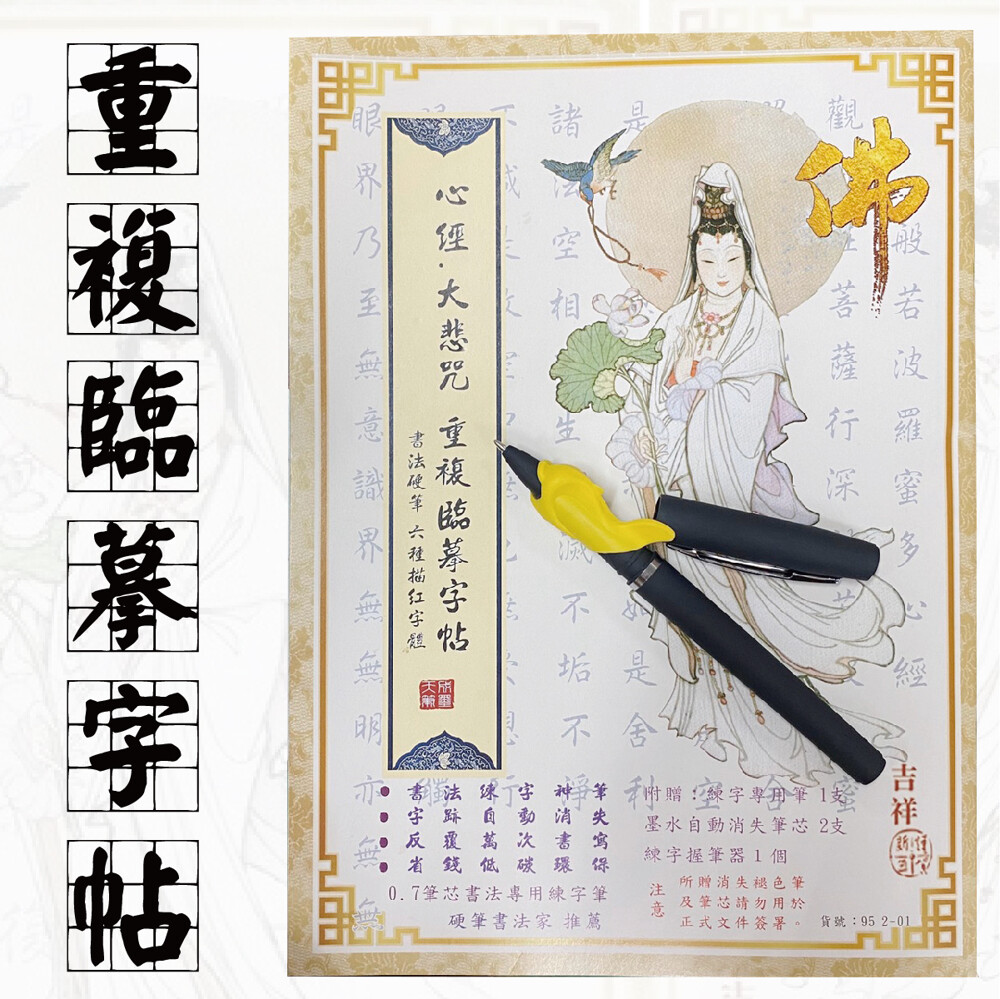 重複臨摹字帖
佛
心經·大悲咒 重複臨摹字帖
書法硬筆 六種描紅字體
般若波羅蜜多心經
菩薩行深
諸法空相
眼界乃至無意識界無無明亦無
書法練字神筆
字跡自動消失
反覆萬次書寫
省錢低碳環保
0.7筆芯書法專用練字筆
硬筆書法家 推薦
附贈:練字專用筆 1支
墨水自動消失筆芯 2支
練字握筆器 1 個
注意
所贈消失褪色筆
及筆芯請勿用於
正式文件簽署。
貨號:95 2-01
吉祥